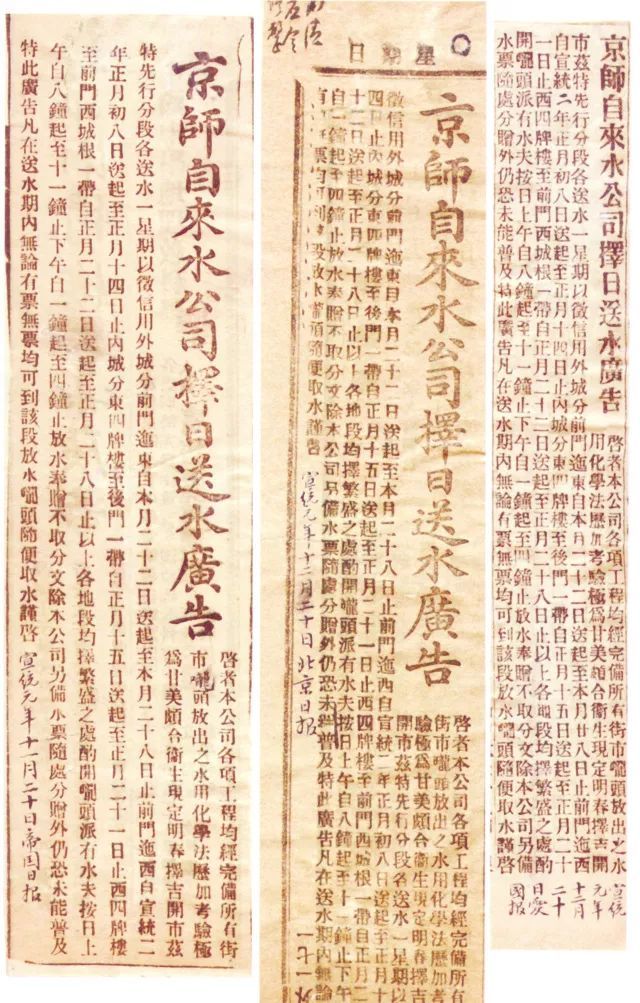 京師自來水公司擇日送水廣告
啓者本公司各項工程均經完備所有街市嚨頭放出之水
用化學法歷加考驗極爲甘美頗合衛生現定明春擇吉開
市茲特先行分段各送水一星期以徵信用外城分前門迤東自本月二十二日送起至本月廿八日止前門迤西
自宣統二年正月初八日送起至正月十四日止內城分東四牌樓至後門一帶自正月十五日送起至正月二十
一日止西四牌樓至前門西城根一帶自正月二十二日送起至正月二十八日止以上各地段均擇繁盛之處酌
開嚨頭派有水夫按日上午自八鐘起至十一鐘止下午自一鐘起至四鐘止放水奉贈不取分文除本公司另備
水票隨處分贈外仍恐未能普及特此廣告凡在送水期內無論有票無票均可到該段放水嚨頭隨便取水謹啓
宣統
元年
十二月
二十
日愛
國報
日期星
京師自來水公司擇日送水廣告
啓者本公司各項工程均經完備所有
街市嚨頭放出之水用化學法歷加考
驗極爲甘美頗合衛生現定明春擇吉
開市茲特先行分段各送水一星期以
徵信用外城分前門迤東自本月二十二日送起至本月二十八日止前門迤西自宣統二年正月初八日送起至正月十
四日止內城分東四牌樓至後門一帶自正月十五日送起至正月二十一日止西四牌樓至前門西城根一帶自正月二
十二日送起至正月二十八日止以上各地段均擇繁盛之處酌開嚨頭派有水夫按日上午自八鐘起至十一鐘止下午
自一鐘起至四鐘止放水奉贈不取分文除本公司另備水票隨處分贈外仍恐未能普及特此廣告凡在送水期內無論
有票無票均可到該段放水嚨頭隨便取水謹啓
宣統元年十二月二十日北京日報
一七一
京師自來水公司擇日送水廣告
啓者本公司各項工程均經完備所有街
市嚨頭放出之水用化學法歷加考驗極
爲甘美頗合衛生現定明春擇吉開市茲
特先行分段各送水一星期以徵信用外城分前門迤東自本月二十二日送起至本月二十八日止前門迤西自宣統二
年正月初八日送起至正月十四日止內城分東四牌樓至後門一帶自正月十五日送起至正月二十一日止西四牌樓
至前門西城根一帶自正月二十二日送起至正月二十八日止以上各地段均擇繁盛之處酌開嚨頭派有水夫按日上
午自八鐘起至十一鐘止下午自一鐘起至四鐘止放水奉贈不取分文除本公司另備水票隨處分贈外仍恐未能普及
特此廣告凡在送水期內無論有票無票均可到該段放水嚨頭隨便取水謹啓
宣統元年十一月二十日帝國日報